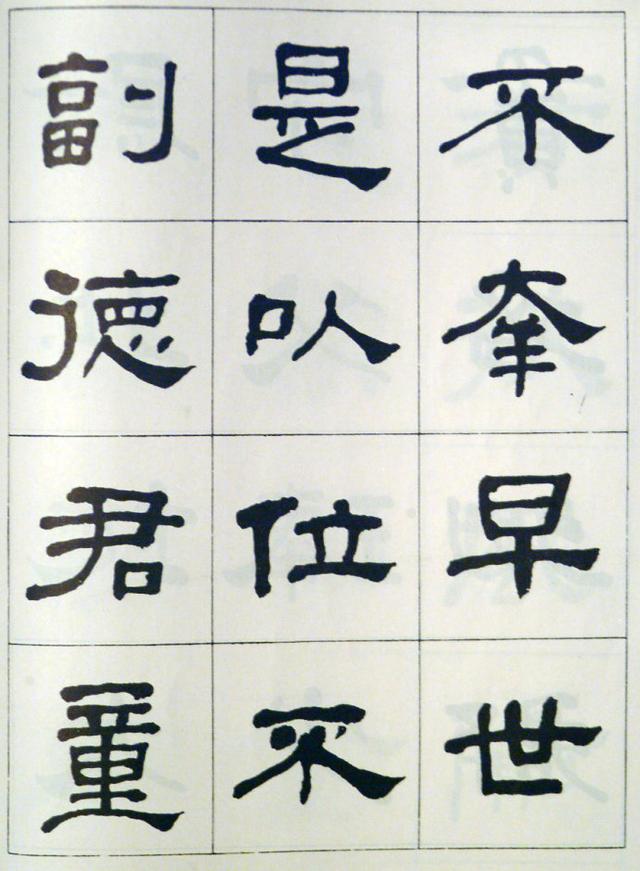 不幸早世
是以位不
副德君童